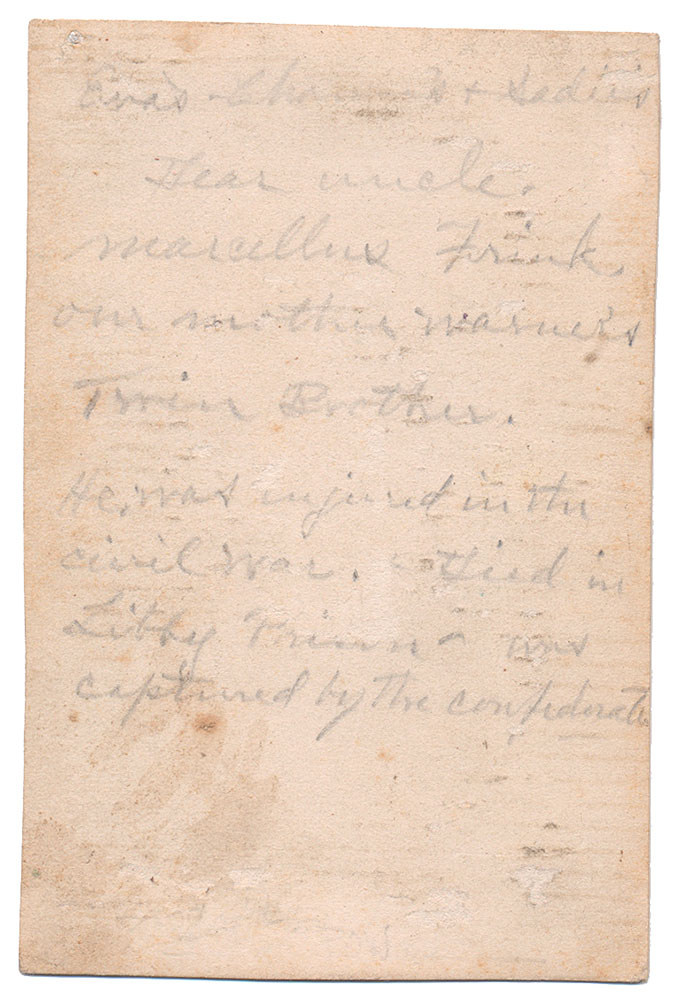 Eva's + Sadie's
Dear uncle.
Marcellus Frink
our mother Warner's
Twin Brother.
He was injured in the
civil war. Died in
Libby Prison was
captured by the confederate